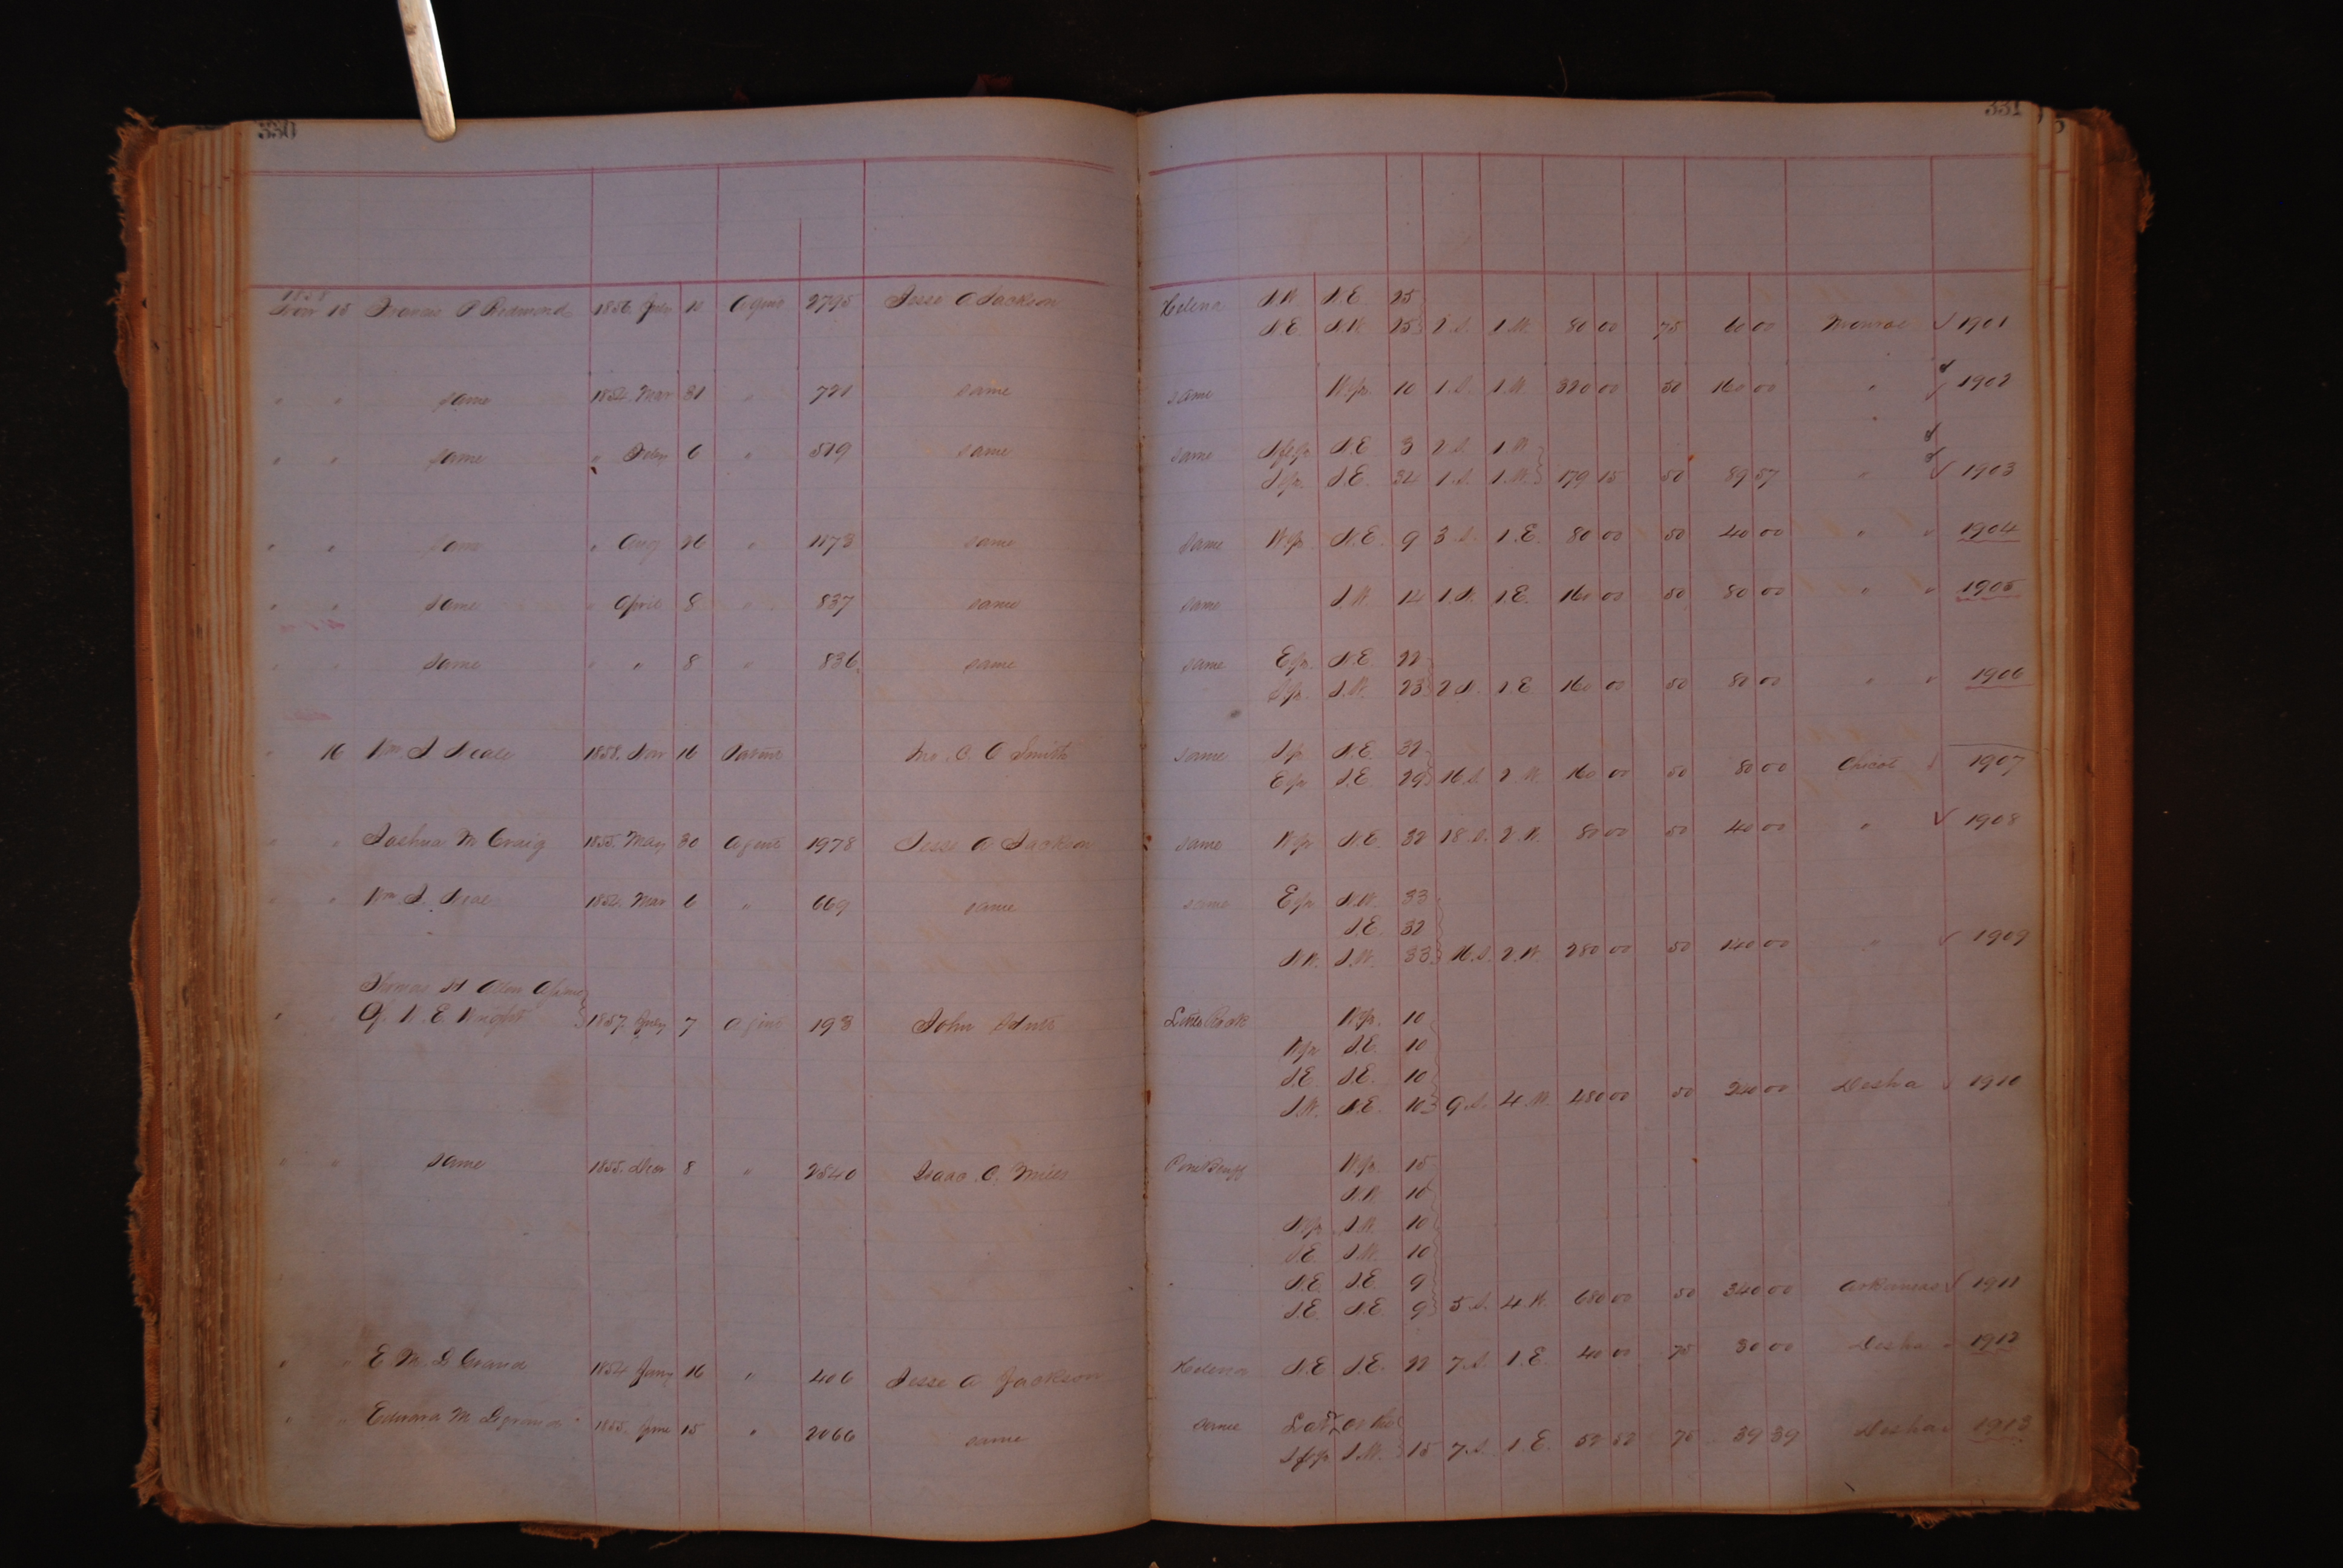 330
331
1858
Nov 15 Francis P Redmond 1856 July 11 Agent 2795 Jesse A Jackson Helena N.W. N.E. 25
N.E. N.W. 25 2.S. 1.W. 80 00 75 60 00 Monroe ✓ 1901
" " same 1854. Mar 31 " 721 same same W½. 10 1.S. 1.W. 320 00 50 160 00 " ✓ 1902
" " same " Feby 6 " 519 same same N.E. 3 2.S. 1.W.
S½. S.E. 34 1.S. 1.W. 179 15 50 89 57 " ✓ 1903
" " same " Aug 26 " 1873 same same W½ N.E. 9 3.S. 1.E. 80 00 50 40 00 " " 1904
" " same " April 8 " 837 same same S.W. 14 1.N. 1.E. 160 00 50 80 00 " " 1905
" " same " " 8 " 836. same same E½. N.E. 22
S.W. 23 2.N. 1.E. 160 00 50 80 00 " " 1906
" 16 Wm S Neale 1858. Nov 16 C. C Smith same S½ N.E. 32
E½ S.E. 29 16.S. 2.W. 160 00 50 80 00 Chicot 1907
" " Joshua M Craig 1855. May 30 Agent 1978 Jesse A Jackson same W½ N.E. 32 18.S. 2.W. 80 00 50 40 00 " ✓ 1908
" " Wm S. Neal 1854. Mar 6 " 669 same same E½ N.W. 33
S.E. 32
N.W. S.W. 33 16.S. 2.W. 280 00 50 140 00 " ✓ 1909
Thomas H Allen
Of. W. E. Wright 1857. July 7 Agent 193 John Little Rock W½. 10
W½ S.E. 10
S.E. S.E. 10
S.W. N.E. 10 9.S. 4.W. 480 00 50 240 00 Desha ✓ 1910
" " same 1855. 8 " 2540 Isaac C. Mills Pine Bluff W½. 15
N.W. 10
N½. S.W. 10
S.E. S.W. 10
N.E. S.E. 9
S.E. N.E. 9 5.S. 4.W. 680 00 50 340 00 Arkansas ✓ 1911
" " E M L Grand 1854 Jany 16 " 406 Jesse A Jackson Helena N.E. S.E. 22 7.S. 1.E. 40 00 75 30 00 Desha " 1912
" " Edward M Legrand 1855. June 15 " 2066 same same
S.W. 15 7.S. 1.E. 52 52 75 39 39 Desha " 1913